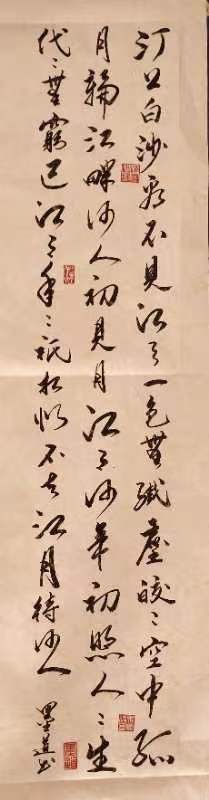 汀上白沙看不見江天一色無纖塵皎〻空中孤
月輪江畔何人初見月江月何年初照人〻生
代〻無窮已江月年〻祗相似不知江月待何人
墨 书